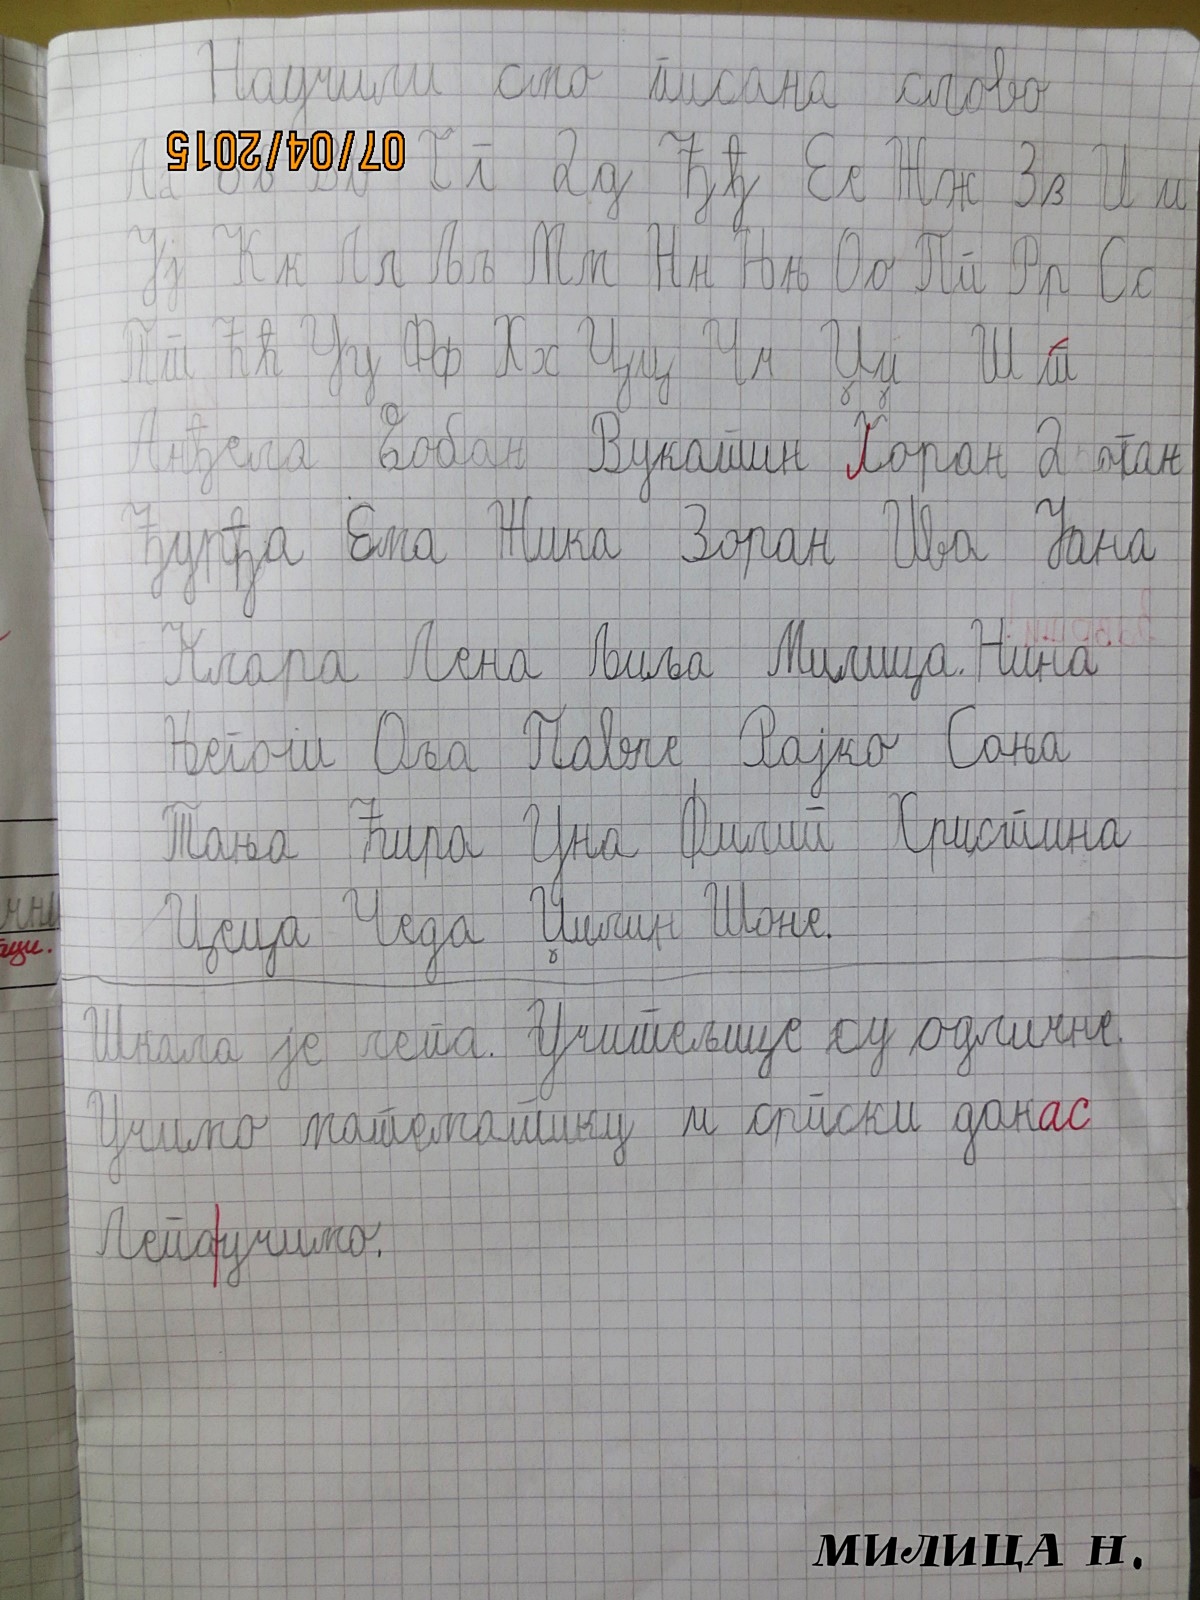 Научили смо писана слова
07/04/2015
Аа Бб Вв Гг Дд Ђђ Ее Жж Зз И и
Јј Кк Лл Љљ Мм Нн Њњ Оо Пп Рр Сс
Тт Ћћ Уу Фф Хх Цц Чч Џџ Ш ш
Анђела Бобан Вукашин Горан Д
Ђурђа Ема Жика Зоран Ива Јана
Клара Лена Љиља Милица. Нина
Његош Оља Павле Рајко Соња
Тања Ћира Уна Филип Христина
Цеца Чеда Џимин Шоне.
Шкала је лепа. Учитељице су одличне.
Учимо математику и српски данас
Лепо учимо.
чни
аци.
МИЛИЦА Н.